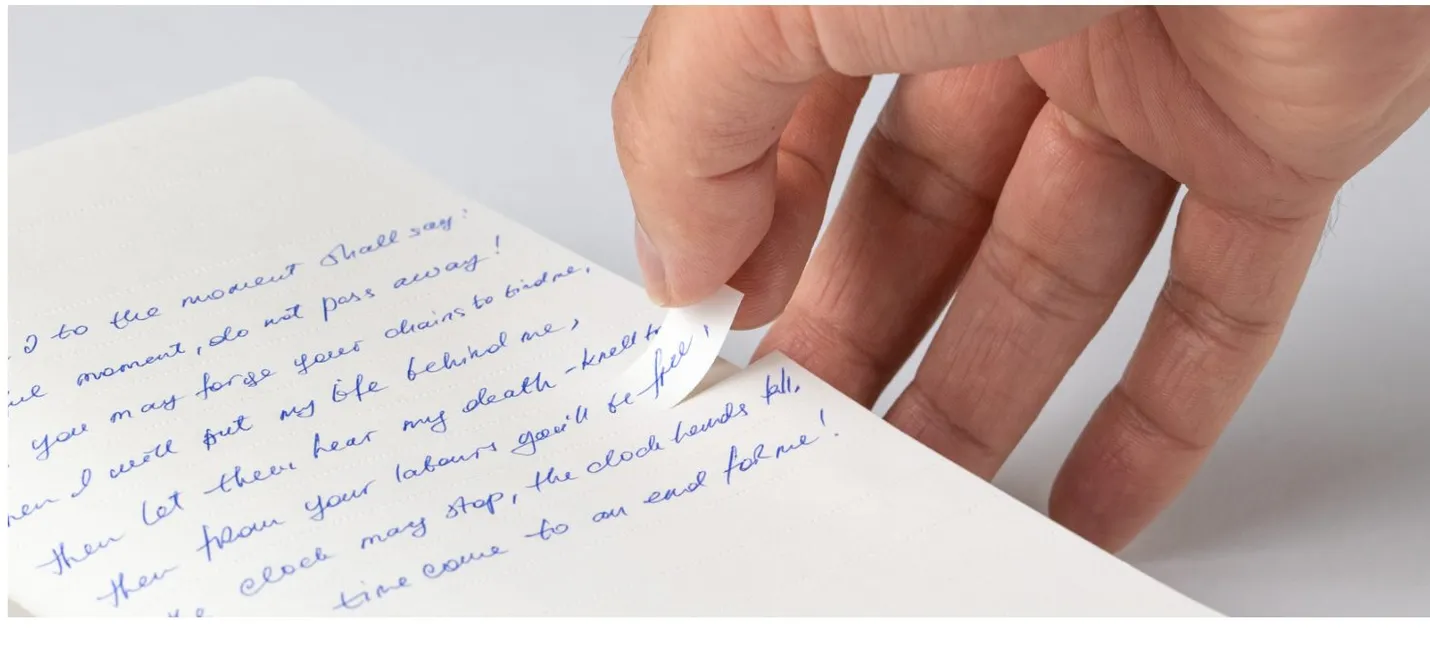 I to the moment shall say:
moment, do not pass away!
you may forge your chains to bind me,
I will put my life behind me,
then let them hear my death-knell
then from your labours you'll be free,
clock may stop, the clock hands fall,
time come to an end for me!